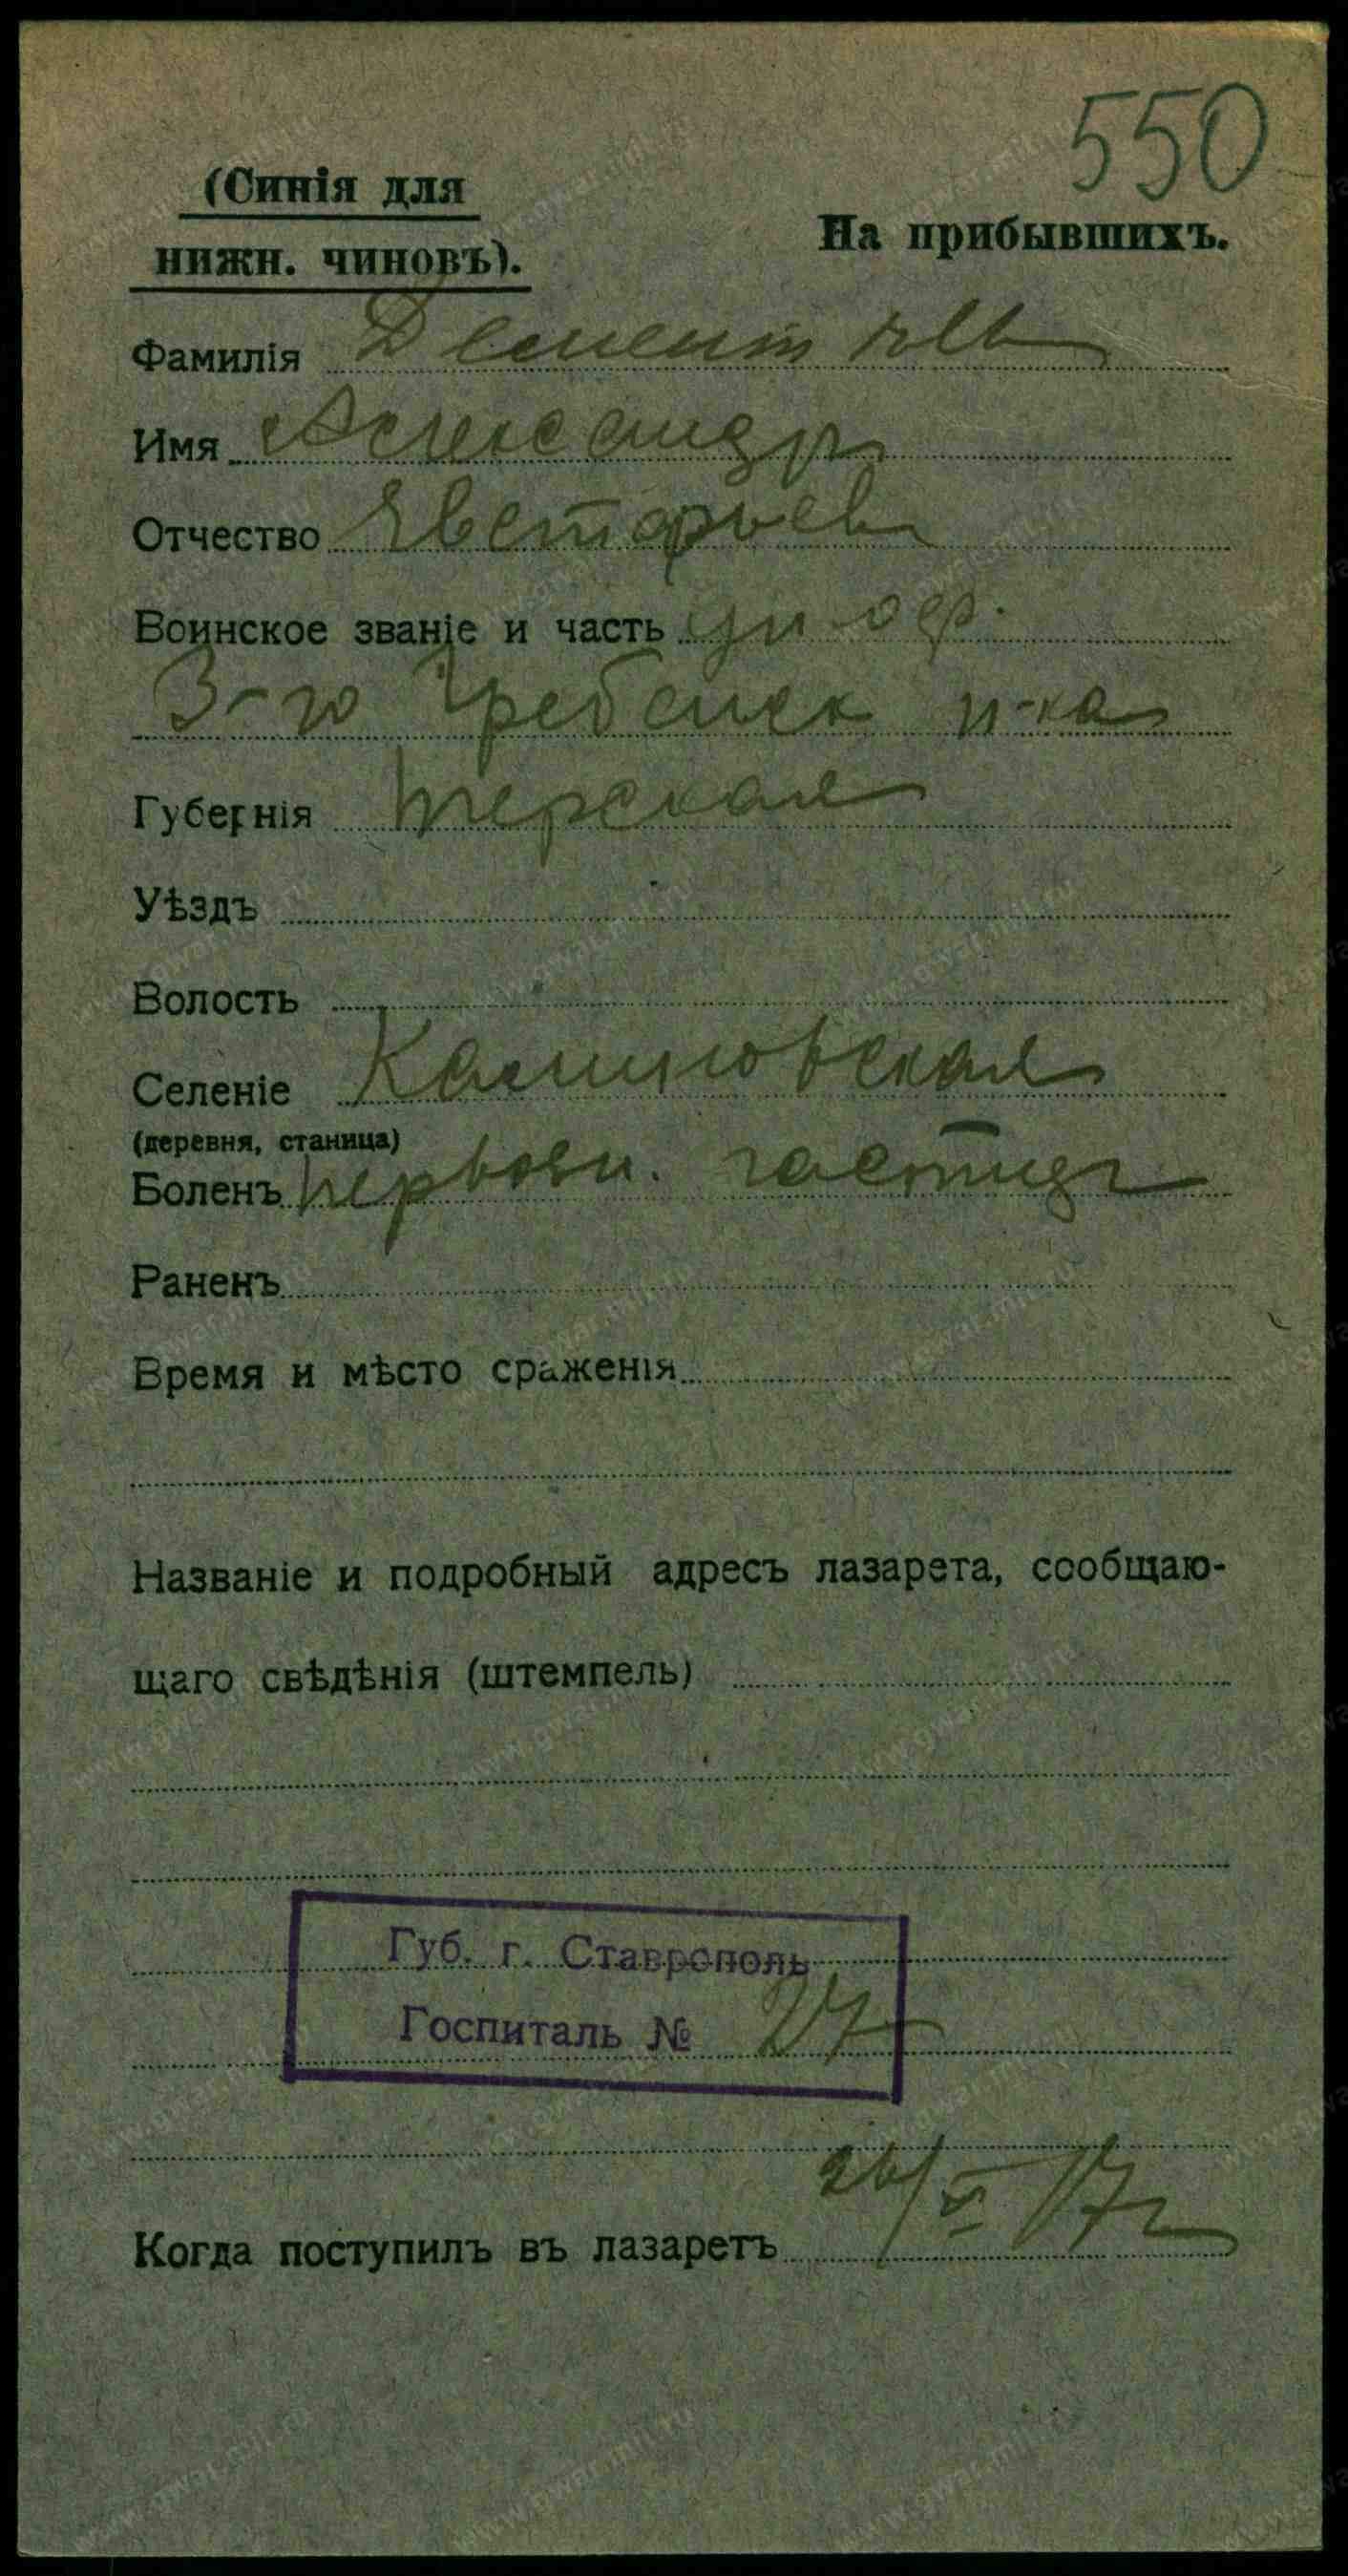 550
(Синія для
нижн. чиновъ).
На прибывшихъ.
Фамилія Дементьев
Имя Александр
Отчество Евстафьев
Воинское званіе и часть ун оф.
3-го Гребенск п-ка
Губернія Терская
Уѣздъ
Волость
Селеніе Калиновская
(деревня, станица)
Боленъ нервозн. гастид
Раненъ
Время и мѣсто сраженія
Названіе и подробный адресъ лазарета, сообщаю-
щаго свѣдѣнія (штемпель)
Губ. г. Ставрополь
Госпиталь № 27
Когда поступилъ въ лазаретъ 26/X 17г